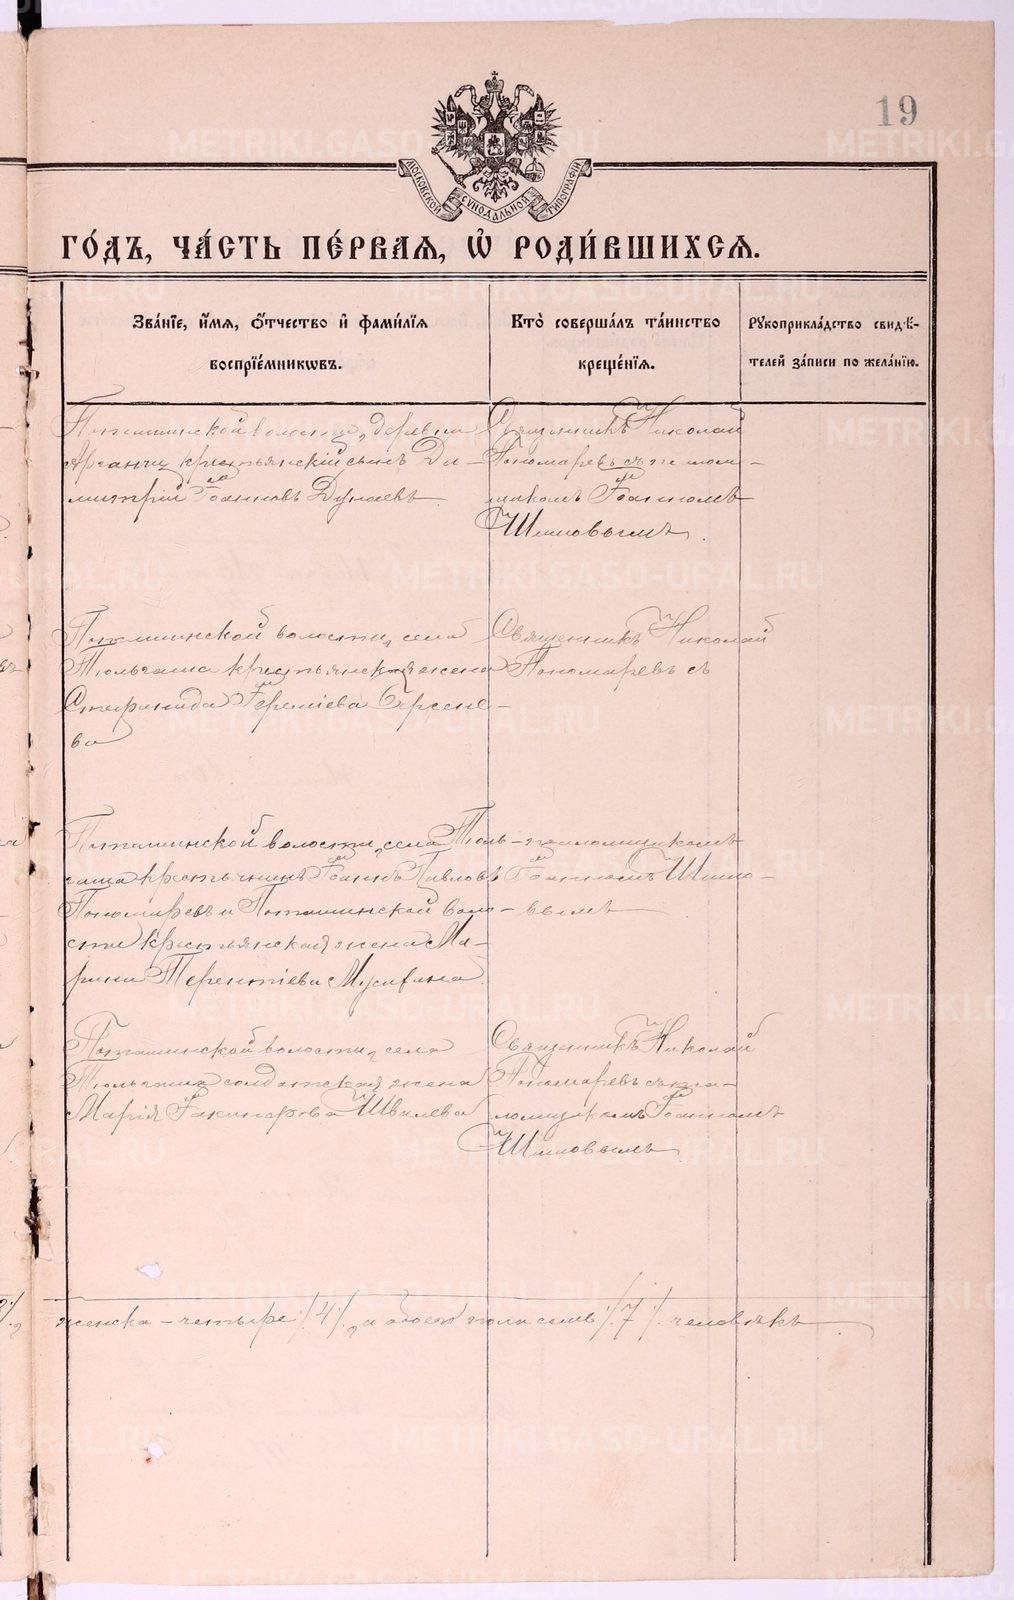 19
МОСКОВСКОЙ СѴНОДАЛЬНОЙ ТИПОГРАФІИ
ГО́ДЪ, ЧА́СТЬ ПЕ́РВАѦ, Ѡ҆ РОДИ́ВШИХСѦ.
Зва́нїе, и҆́мѧ, ѻ҆́тчество и҆ фами́лїѧ
воспрїе́мникѡвъ.
Кто̀ соверша́лъ та́инство
креще́нїѧ.
Рꙋкоприкла́дство свидѣ́-
телей за́писи по жела́нїю.
Поташинской волости, деревни
Арганчи крестьянскій сынъ Ди-
митрій Іоанновъ Дунаевъ
Священникъ Николай
Пономаревъ съ псалом-
щикомъ Іоанномъ
Шиловымъ.
Поташинской волости, села
Тюльгаша крестьянская жена
Стефанида Іереміева Берсене-
ва
Священникъ Николай
Пономаревъ съ
Поташинской волости, села Тюль-
гаша крестьянинъ Іоаннъ Павловъ
Пономаревъ и Поташинской воло-
сти крестьянская жена Ма-
рина Терентіева Мусихина.
псаломщикомъ
Іоанномъ Шило-
вымъ
Поташинской волости, села
Тюльгаша солдатская жена
Марія Іакинфова Швалева
Священникъ Николай
Пономаревъ съ пса-
ломщикомъ Іоанномъ
Шиловымъ
женска – четыре /4/, а обоего пола семь /7/ человѣкъ